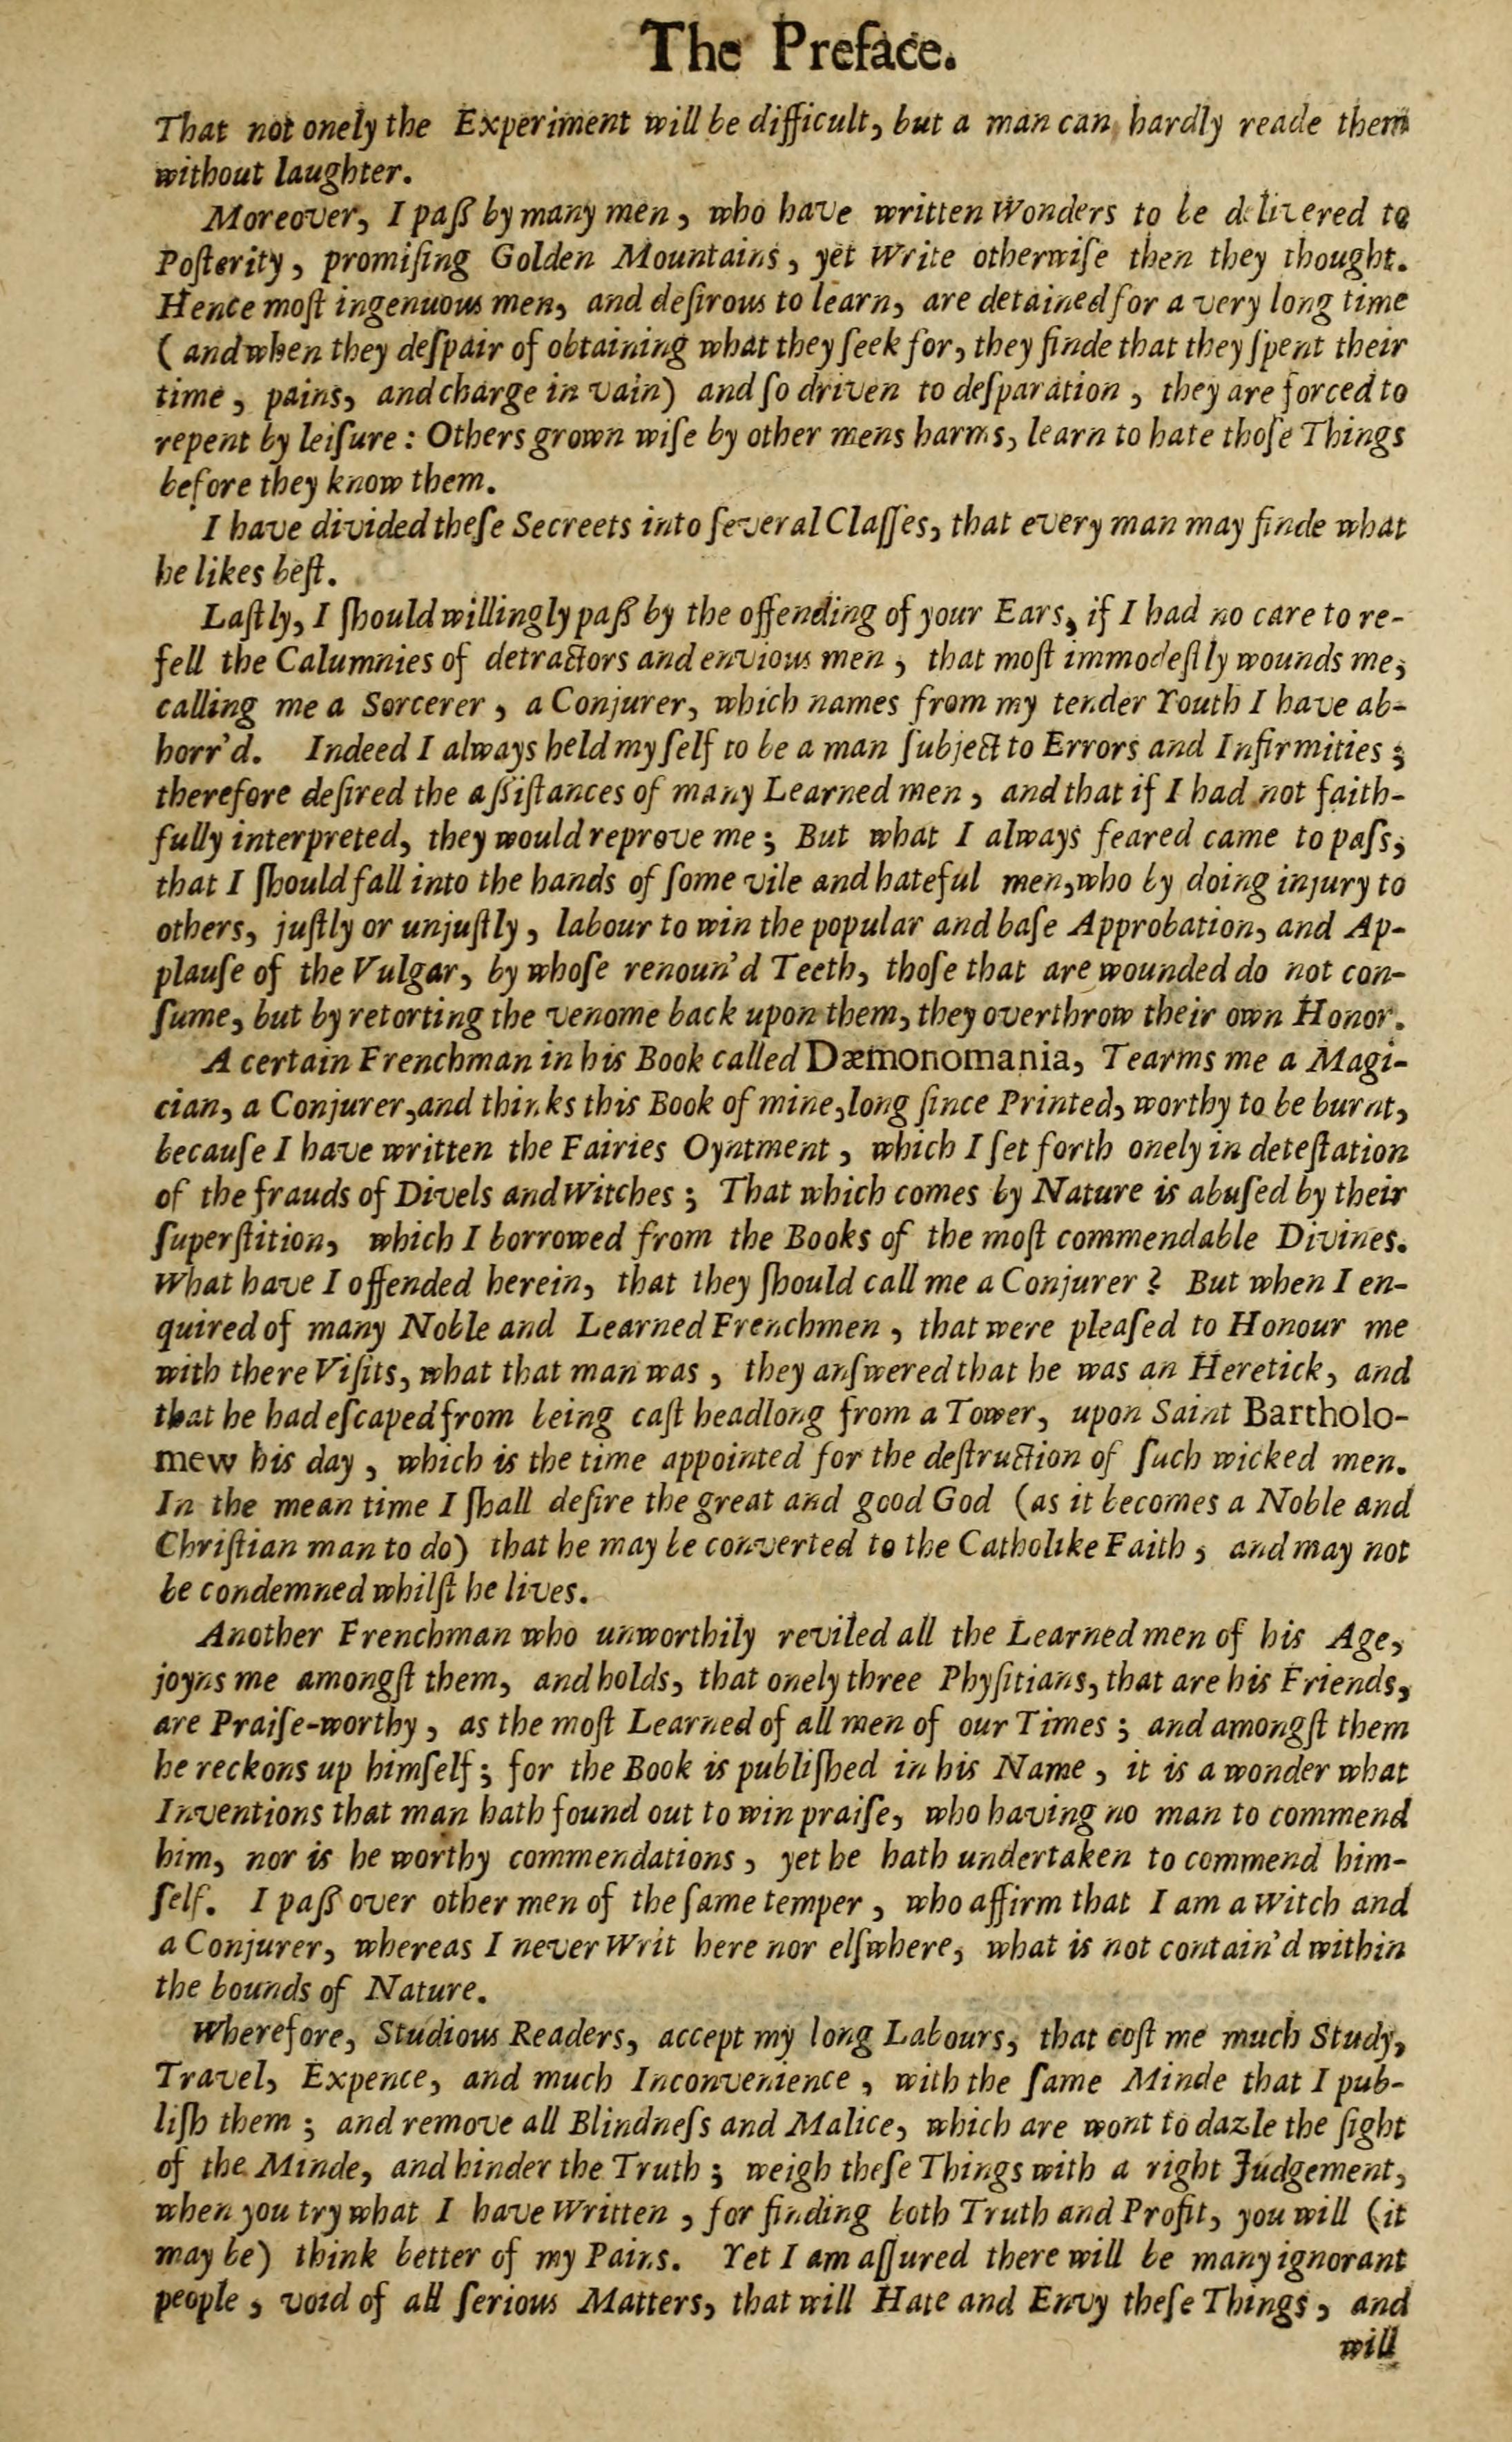 The Preface.
That not onely the Experiment will be difficult, but a man can hardly reade them
without laughter.
Moreover, I paß by many men, who have written Wonders to be delivered to
Poſterity, promiſing Golden Mountains, yet Write otherwiſe then they thought.
Hence moſt ingenuous men, and deſirous to learn, are detained for a very long time
( and when they deſpair of obtaining what they ſeek for, they finde that they ſpent their
time, pains, and charge in vain) and ſo driven to deſparation, they are forced to
repent by leiſure: Others grown wiſe by other mens harms, learn to hate thoſe Things
before they know them.
I have divided theſe Secreets into ſeveral Claſſes, that every man may finde what
he likes beſt.
Laſtly, I ſhould willingly paß by the offending of your Ears, if I had no care to re-
fell the Calumnies of detractors and envious men, that moſt immodeſtly wounds me,
calling me a Sorcerer, a Conjurer, which names from my tender Youth I have ab-
horr'd. Indeed I always held my ſelf to be a man ſubject to Errors and Infirmities;
therefore deſired the aßiſtances of many Learned men, and that if I had not faith-
fully interpreted, they would reprove me; But what I always feared came to paſs,
that I ſhould fall into the hands of ſome vile and hateful men, who by doing injury to
others, juſtly or unjuſtly, labour to win the popular and baſe Approbation, and Ap-
plauſe of the Vulgar, by whoſe renoun'd Teeth, thoſe that are wounded do not con-
ſume, but by retorting the venome back upon them, they overthrow their own Honor.
A certain Frenchman in his Book called Dæmonomania, Tearms me a Magi-
cian, a Conjurer, and thinks this Book of mine, long ſince Printed, worthy to be burnt,
becauſe I have written the Fairies Oyntment, which I ſet forth onely in deteſtation
of the frauds of Divels and Witches; That which comes by Nature is abuſed by their
ſuperſtition, which I borrowed from the Books of the moſt commendable Divines.
What have I offended herein, that they ſhould call me a Conjurer? But when I en-
quired of many Noble and Learned Frenchmen, that were pleaſed to Honour me
with there Viſits, what that man was, they anſwered that he was an Heretick, and
that he had eſcaped from being caſt headlong from a Tower, upon Saint Bartholo-
mew his day, which is the time appointed for the deſtruction of ſuch wicked men.
In the mean time I ſhall deſire the great and good God (as it becomes a Noble and
Chriſtian man to do) that he may be converted to the Catholike Faith, and may not
be condemned whilſt he lives.
Another Frenchman who unworthily reviled all the Learned men of his Age,
joyns me amongſt them, and holds, that onely three Phyſitians, that are his Friends,
are Praiſe-worthy, as the moſt Learned of all men of our Times; and amongſt them
he reckons up himſelf; for the Book is publiſhed in his Name, it is a wonder what
Inventions that man hath found out to win praiſe, who having no man to commend
him, nor is he worthy commendations, yet he hath undertaken to commend him-
ſelf. I paß over other men of the ſame temper, who affirm that I am a Witch and
a Conjurer, whereas I never Writ here nor elſwhere, what is not contain'd within
the bounds of Nature.
Wherefore, Studious Readers, accept my long Labours, that coſt me much Study,
Travel, Expence, and much Inconvenience, with the ſame Minde that I pub-
liſh them; and remove all Blindneſs and Malice, which are wont to dazle the ſight
of the Minde, and hinder the Truth; weigh theſe Things with a right Judgement,
when you try what I have Written, for finding both Truth and Profit, you will (it
may be) think better of my Pains. Yet I am aſſured there will be many ignorant
people, void of all ſerious Matters, that will Hate and Envy theſe Things, and
will